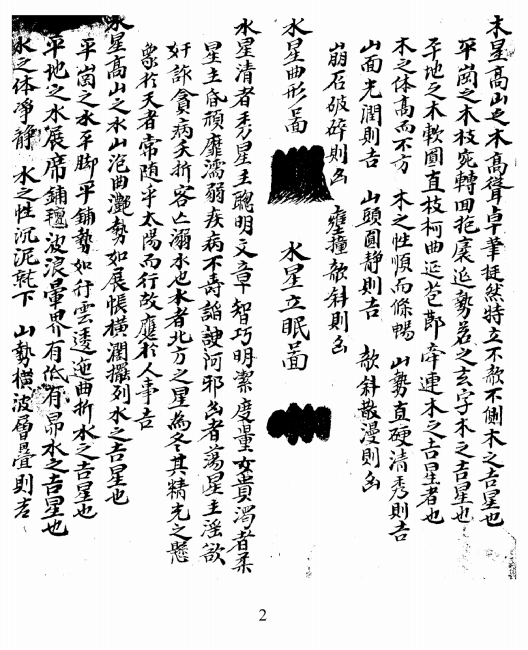 木星高山之木高聳卓筆挺然特立不欹不側木之吉星也
平崗之木枝宛轉回抱裹迤勢若之玄字木之吉星也
平地之木軟圓直枝柯曲迤苞節牽連木之吉星者也
木之体高而不方 木之性順而條暢 山勢直硬清秀則吉
山面光潤則吉 山頭圓静則吉 欹斜散漫則凶
崩石破碎則凶 壅撞欹斜則凶
水星曲形啚 水星立眠啚
水星清者秀星主聰明文章智巧明潔度量女貴濁者柔
星主昏頑靡濡弱疾病不壽諂諛河邪凶者蕩星主淫欲
奸詐貪病夭折客亡溺水也水者北方之星為冬其精光之懸
象於天者常随乎太陽而行故應於人事吉
水星高山之水山泡曲灔勢如展帳橫濶擺列水之吉星也
平崗之水平脚平鋪勢如行雲逶迤曲折水之吉星也
平地之水展席鋪氊波浪暈界有低有昂水之吉星也
水之体淨静 水之性沉泥就下 山勢橫波層疊則吉
2